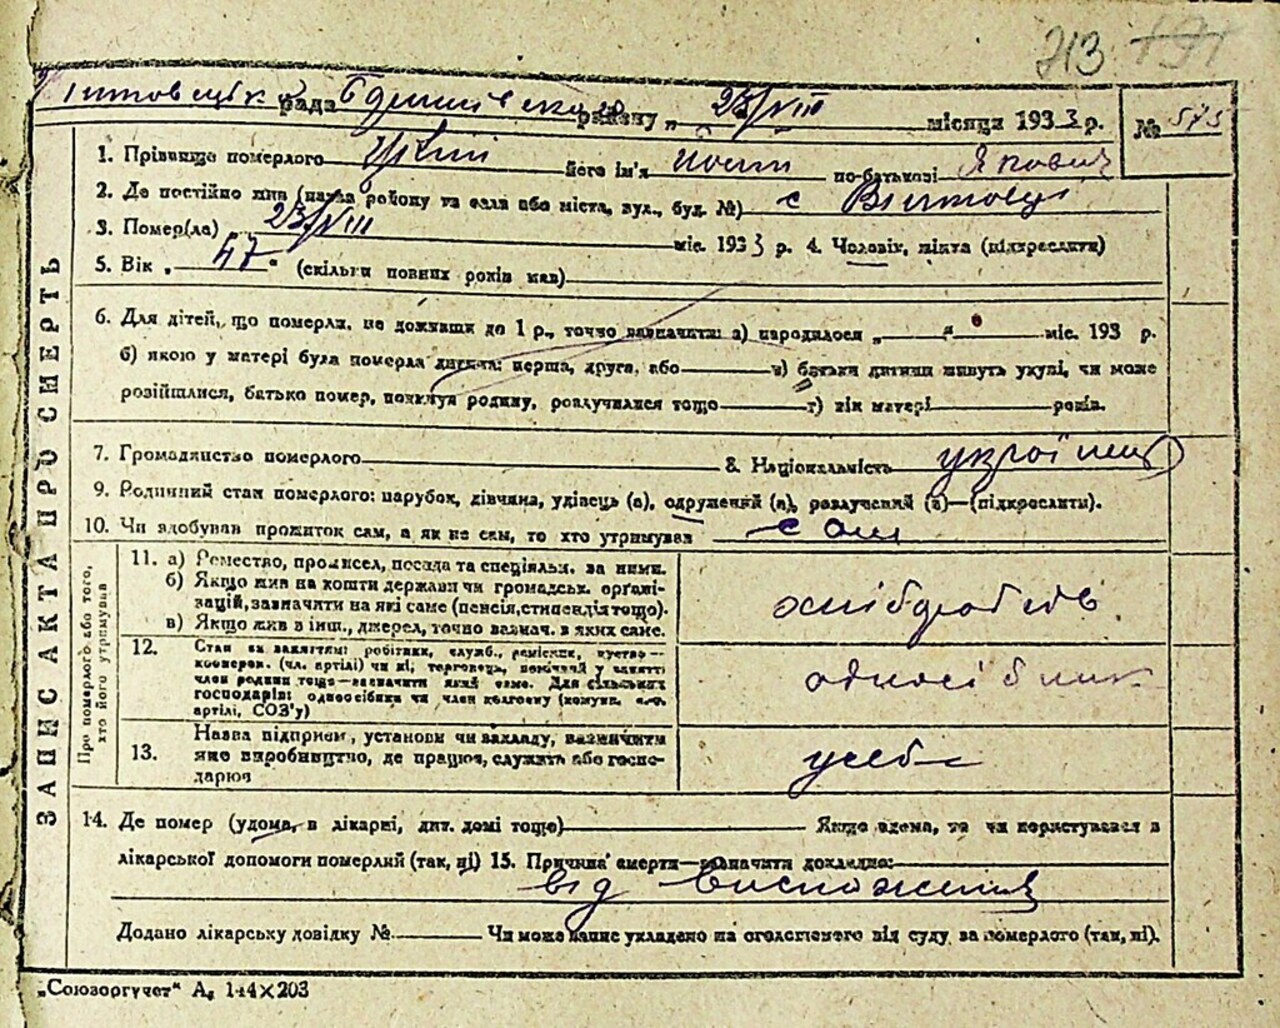 713
рада району „ 23/VIII місяця 1933 р. № 575
ЗАПИС АКТА ПРО СМЕРТЬ
1. Прізвище померлого його ім'я по-батькові Якович
2. Де постійно жив (назва району та села або міста, вул., буд. №) с
3. Помер(ла) 23/VIII міс. 1933 р. 4. Чоловік, жінта (підкреслити)
5. Вік „ 47 “ (скільки повних років мав)
6. Для дітей, що померли, не доживши до 1 р., точно зазначити: а) народилося „ “ міс. 193 р.
б) якою у матері була померла дитина: перша, друга, або в) батьки дитини живуть укупі, чи може
розійшлися, батько помер, покинув родину, розлучилися тощо г) вік матері років.
7. Громадянство померлого 8. Національність
9. Родинний стан померлого: парубок, дівчина, удівець (а), одружений (а), розлучений (а)—(підкреслити).
10. Чи здобував прожиток сам, а як не сам, то хто утримував сам
Про померлого або того, хто його утримував
11. а) Ремество, промисел, посада та спеціяльн. за ними.
б) Якщо жив на кошти держави чи громадськ. орґані-
зацій, зазначити на які саме (пенсія, стипендія тощо).
в) Якщо жив з інш., джерел, точно зазнач. з яких саме.
хлібороб
12. Стан за заняттям: робітник, служб., ремісник, кустар—
кооперов. (чл. артілі) чи ні,
член родини тощо—зазначити який саме. Для сільських
господарів: одноосібник чи член колгоспу
артілі, СОЗ'у)
односібник
13. Назва підприєм., установи чи закладу, зазначити
яке виробництво, де працює, служить або госпо-
дарює
у себе
14. Де помер (удома, в лікарні, дит. домі тощо) Якщо вдома, то чи користувався з
лікарської допомоги померлий (так, ні) 15. Причина смерти—зазначити докладно:
від виснаження
Додано лікарську довідку № Чи може запис укладено на оголошеного від суду за померлого (так, ні).
„Союзоргучет“ А, 144×203